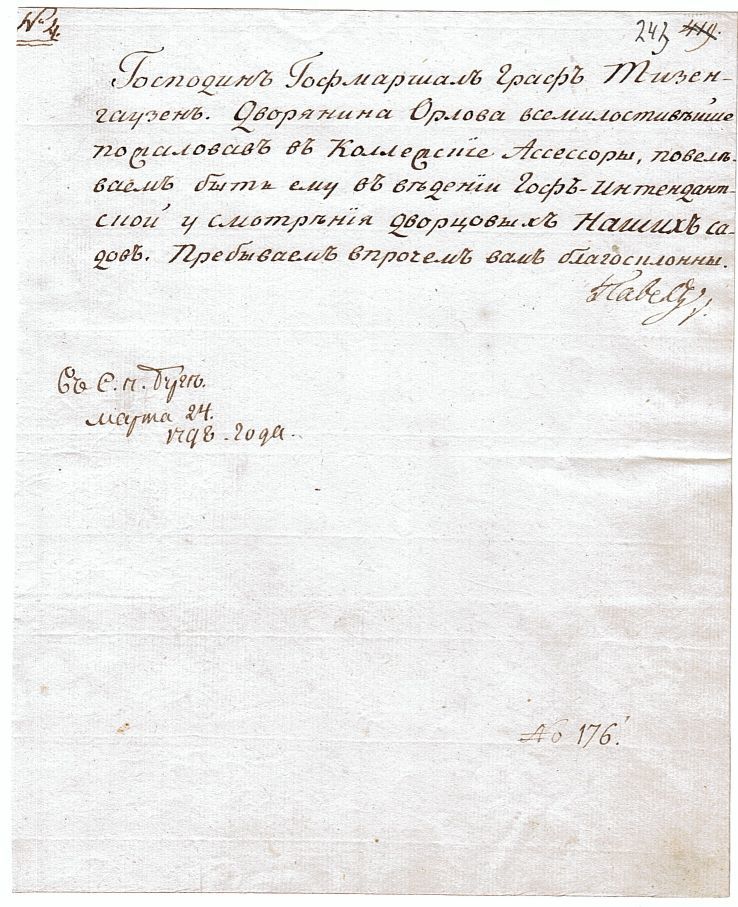 № 4.
243 419.
Господинъ Гофмаршалъ Графъ Тизен-
гаузенъ. Дворянина Орлова всемилостивѣйше
пожаловавъ въ Коллежскіе Ассессоры, повелѣ-
ваемъ быть ему въ вѣденіи Гофъ-Интендант-
ской у смотрѣнія дворцовыхъ Нашихъ са-
довъ. Пребываемъ впрочемъ вамъ благосклонны.
Павелъ
Въ С. П. Бугѣ.
марта 24.
года.
No 176.